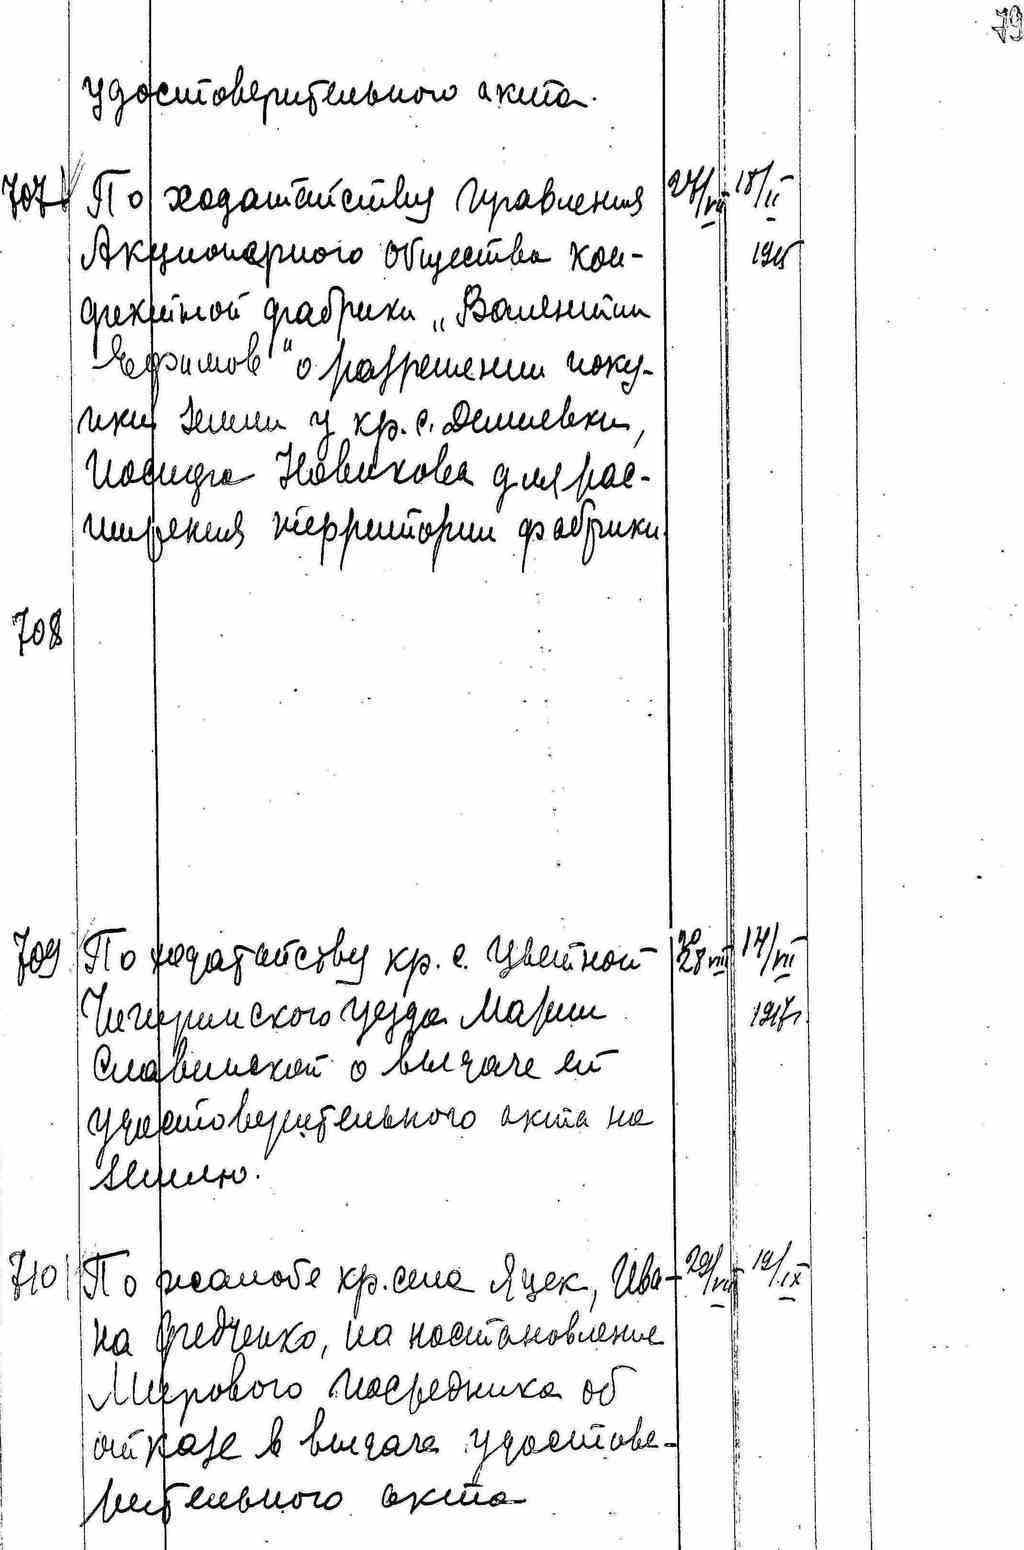 79
удостоверительного акта.
707 По ходатайству Правления 27/VII 18/II
Акционерного общества кон- 1915
фектной фабрики „Валентин
Ефимов" о разрешении поку-
пки земли у кр. с. Демиевки,
Иосифа Новикова для рас-
ширения территории фабрики.
708
709 По ходатайству кр. с. Цветной 28 VII 14/VII
Чигиринского уезда Марии 1917г.
Славинской о выдаче ей
удостоверительного акта на
землю.
710 По жалобе кр. села Яцек, Ива- 29/VII 19/IX
на Федченко, на постановление
Мирового посредника об
отказе в выдаче удостове-
рительного акта